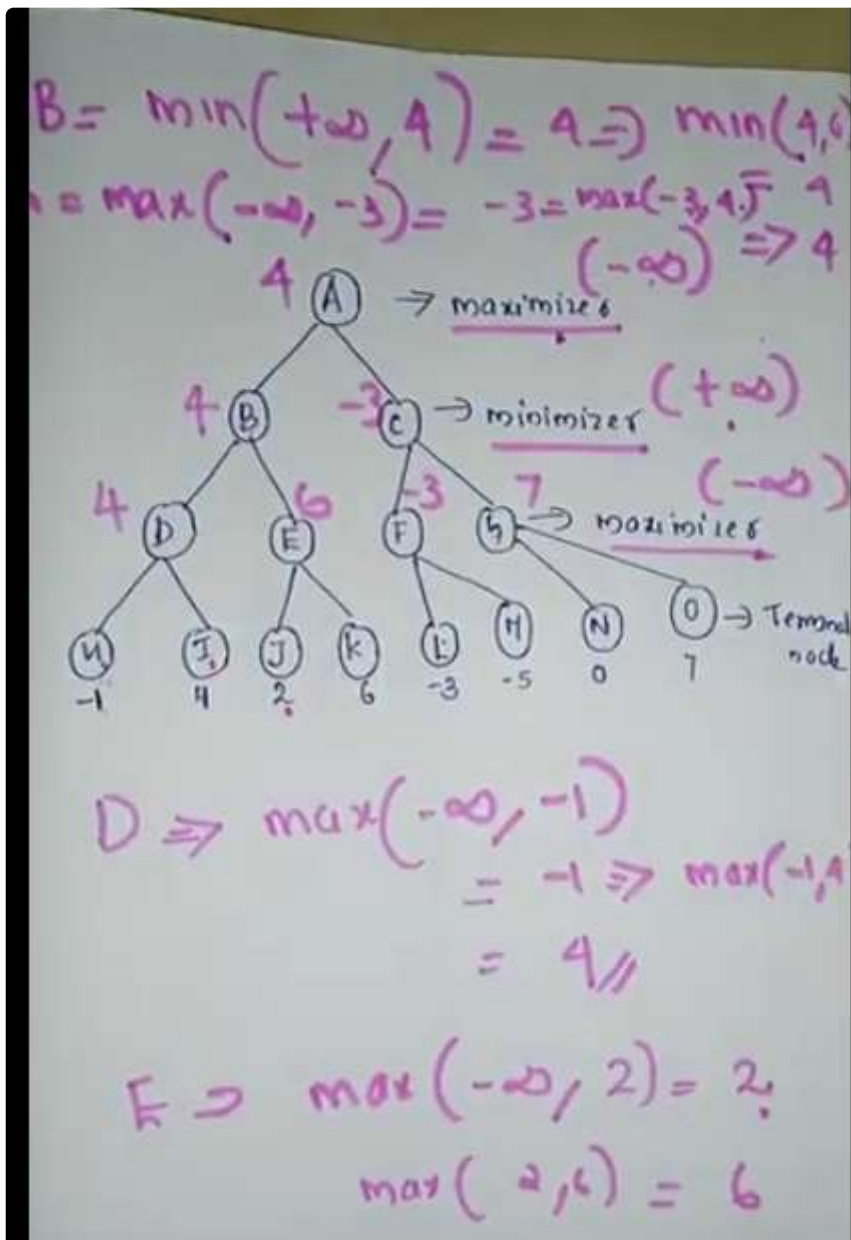 B = min(+∞, 4) = 4 => min(4, 6)
= max(-∞, -3) = -3 = max(-3, 4) = 4
(-∞) => 4
4 A → maximizer
4 B -3 C → minimizer (+∞)
(-∞)
4 D 6 E -3 F 7 G → maximizer
H I J K L M N O → Terminal node
-1 4 2 6 -3 -5 0 7
D => max(-∞, -1)
= -1 => max(-1, 4
= 4//
E => max(-∞, 2) = 2
max(2, 6) = 6